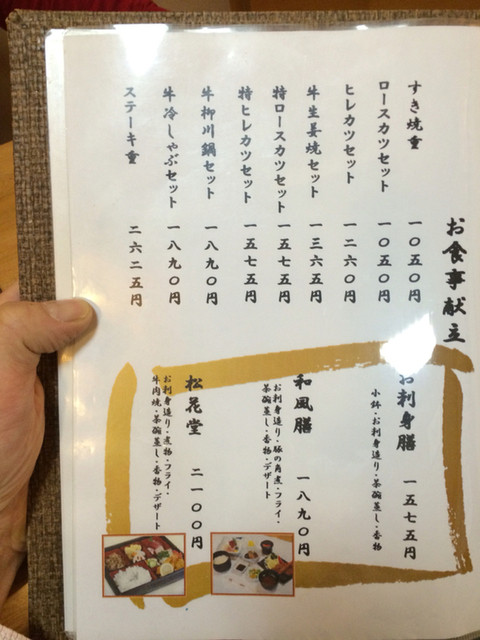 お食事献立
すき焼重 一〇五〇円
ロースカツセット 一〇五〇円
ヒレカツセット 一二六〇円
牛生姜焼セット 一三六五円
特ロースカツセット 一五七五円
特ヒレカツセット 一五七五円
牛柳川鍋セット 一八九〇円
牛冷しゃぶセット 一八九〇円
ステーキ重 二六二五円
お刺身膳 一五七五円
小鉢・お刺身造り・茶碗蒸し・香物
和風膳 一八九〇円
お刺身造り・豚の角煮・フライ・
茶碗蒸し・香物・デザート
松花堂 二一〇〇円
お刺身造り・煮物・フライ・
牛肉焼・茶碗蒸し・香物・デザート